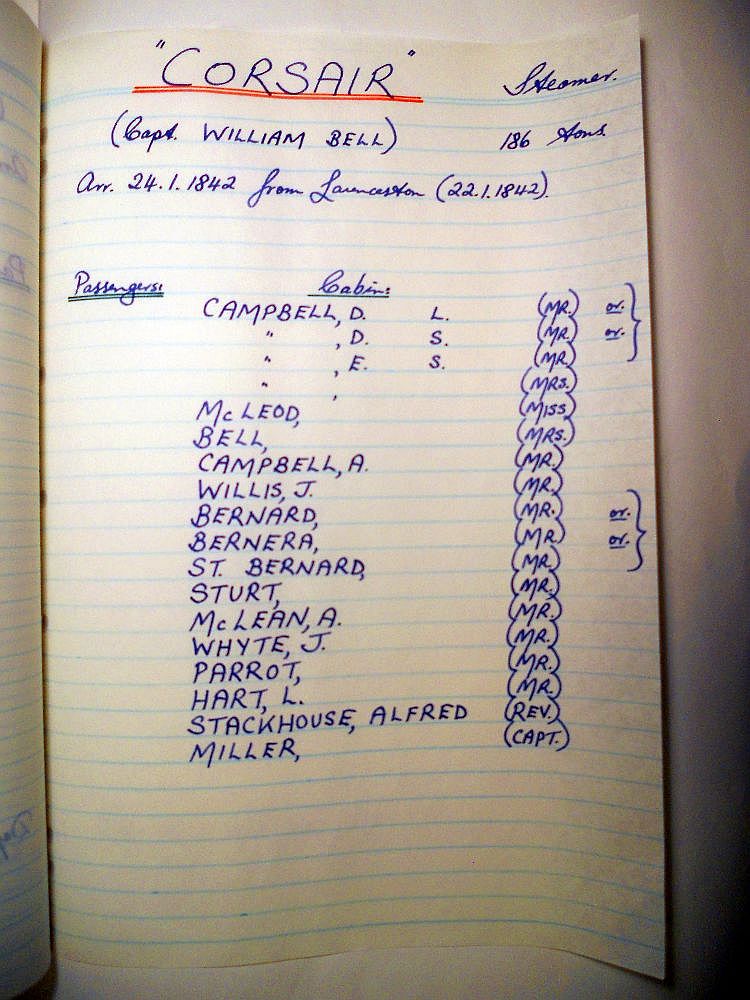 "CORSAIR" Steamer.
(Capt. WILLIAM BELL) 186 tons.
Arr. 24.1.1842 from Launceston (22.1.1842).
Passengers: Cabin:
CAMPBELL, D. L. (MR.) or.
" , D. S. (MR.) or.
" , E. S. (MR.)
" , (MRS.)
McLEOD, (MISS)
BELL, (MRS.)
CAMPBELL, A. (MR.)
WILLIS, J. (MR.)
BERNARD, (MR.) or.
BERNERA, (MR.) or.
ST. BERNARD, (MR.)
STURT, (MR.)
McLEAN, A. (MR.)
WHYTE, J. (MR.)
PARROT, (MR.)
HART, L. (MR.)
STACKHOUSE, ALFRED (REV.)
MILLER, (CAPT.)